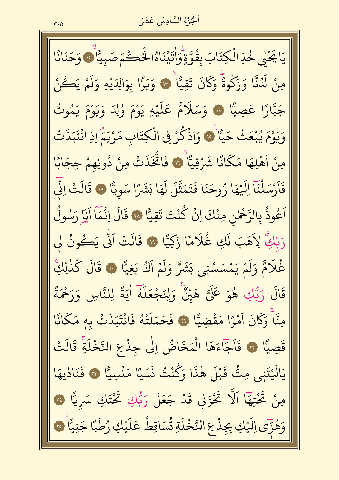 الجزء السادس عشر
٣٠٥
يَا يَحْيٰى خُذِ الْكِتَابَ بِقُوَّةٍ وَاٰتَيْنَاهُ الْحُكْمَ صَبِيًّا ﴿١٢﴾ وَحَنَانًا
مِنْ لَدُنَّا وَزَكٰوةً وَكَانَ تَقِيًّا ﴿١٣﴾ وَبَرًّا بِوَالِدَيْهِ وَلَمْ يَكُنْ
جَبَّارًا عَصِيًّا ﴿١٤﴾ وَسَلَامٌ عَلَيْهِ يَوْمَ وُلِدَ وَيَوْمَ يَمُوتُ
وَيَوْمَ يُبْعَثُ حَيًّا ﴿١٥﴾ وَاذْكُرْ فِي الْكِتَابِ مَرْيَمَ اِذِ انْتَبَذَتْ
مِنْ اَهْلِهَا مَكَانًا شَرْقِيًّا ﴿١٦﴾ فَاتَّخَذَتْ مِنْ دُونِهِمْ حِجَابًا
فَاَرْسَلْنَا اِلَيْهَا رُوحَنَا فَتَمَثَّلَ لَهَا بَشَرًا سَوِيًّا ﴿١٧﴾ قَالَتْ اِنِّي
اَعُوذُ بِالرَّحْمٰنِ مِنْكَ اِنْ كُنْتَ تَقِيًّا ﴿١٨﴾ قَالَ اِنَّمَا اَنَا رَسُولُ
رَبِّكِ لِاَهَبَ لَكِ غُلَامًا زَكِيًّا ﴿١٩﴾ قَالَتْ اَنّٰى يَكُونُ لِي
غُلَامٌ وَلَمْ يَمْسَسْنِي بَشَرٌ وَلَمْ اَكُ بَغِيًّا ﴿٢٠﴾ قَالَ كَذٰلِكِ
قَالَ رَبُّكِ هُوَ عَلَيَّ هَيِّنٌ وَلِنَجْعَلَهُ اٰيَةً لِلنَّاسِ وَرَحْمَةً
مِنَّا وَكَانَ اَمْرًا مَقْضِيًّا ﴿٢١﴾ فَحَمَلَتْهُ فَانْتَبَذَتْ بِهِ مَكَانًا
قَصِيًّا ﴿٢٢﴾ فَاَجَاءَهَا الْمَخَاضُ اِلٰى جِذْعِ النَّخْلَةِ قَالَتْ
يَا لَيْتَنِي مِتُّ قَبْلَ هٰذَا وَكُنْتُ نَسْيًا مَنْسِيًّا ﴿٢٣﴾ فَنَادٰيهَا
مِنْ تَحْتِهَا اَلَّا تَحْزَنِي قَدْ جَعَلَ رَبُّكِ تَحْتَكِ سَرِيًّا ﴿٢٤﴾
وَهُزِّي اِلَيْكِ بِجِذْعِ النَّخْلَةِ تُسَاقِطْ عَلَيْكِ رُطَبًا جَنِيًّا ﴿٢٥﴾